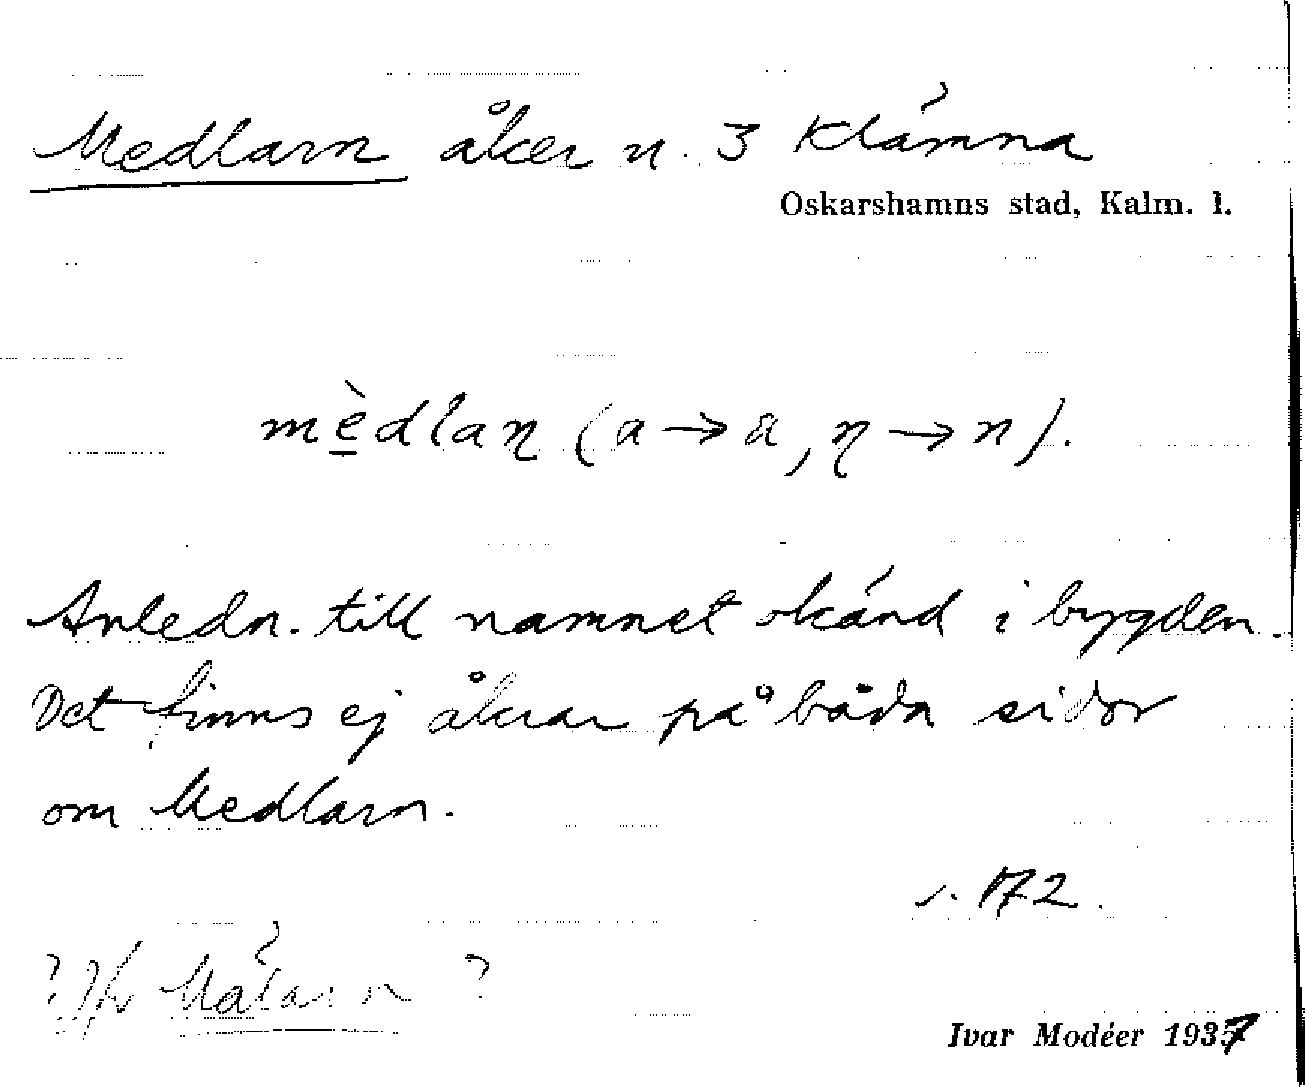 Medlarn åker n. 3 Klämna
Oskarshamns stad, Kalm. l.
mèdlaꞃ (a → a, ꞃ → n).
Anledn. till namnet okänd i bygden.
Det finns ej åkrar på båda sidor
om Medlarn.
s. 172.
? Jfr Mälarn ?
Ivar Modéer 1937